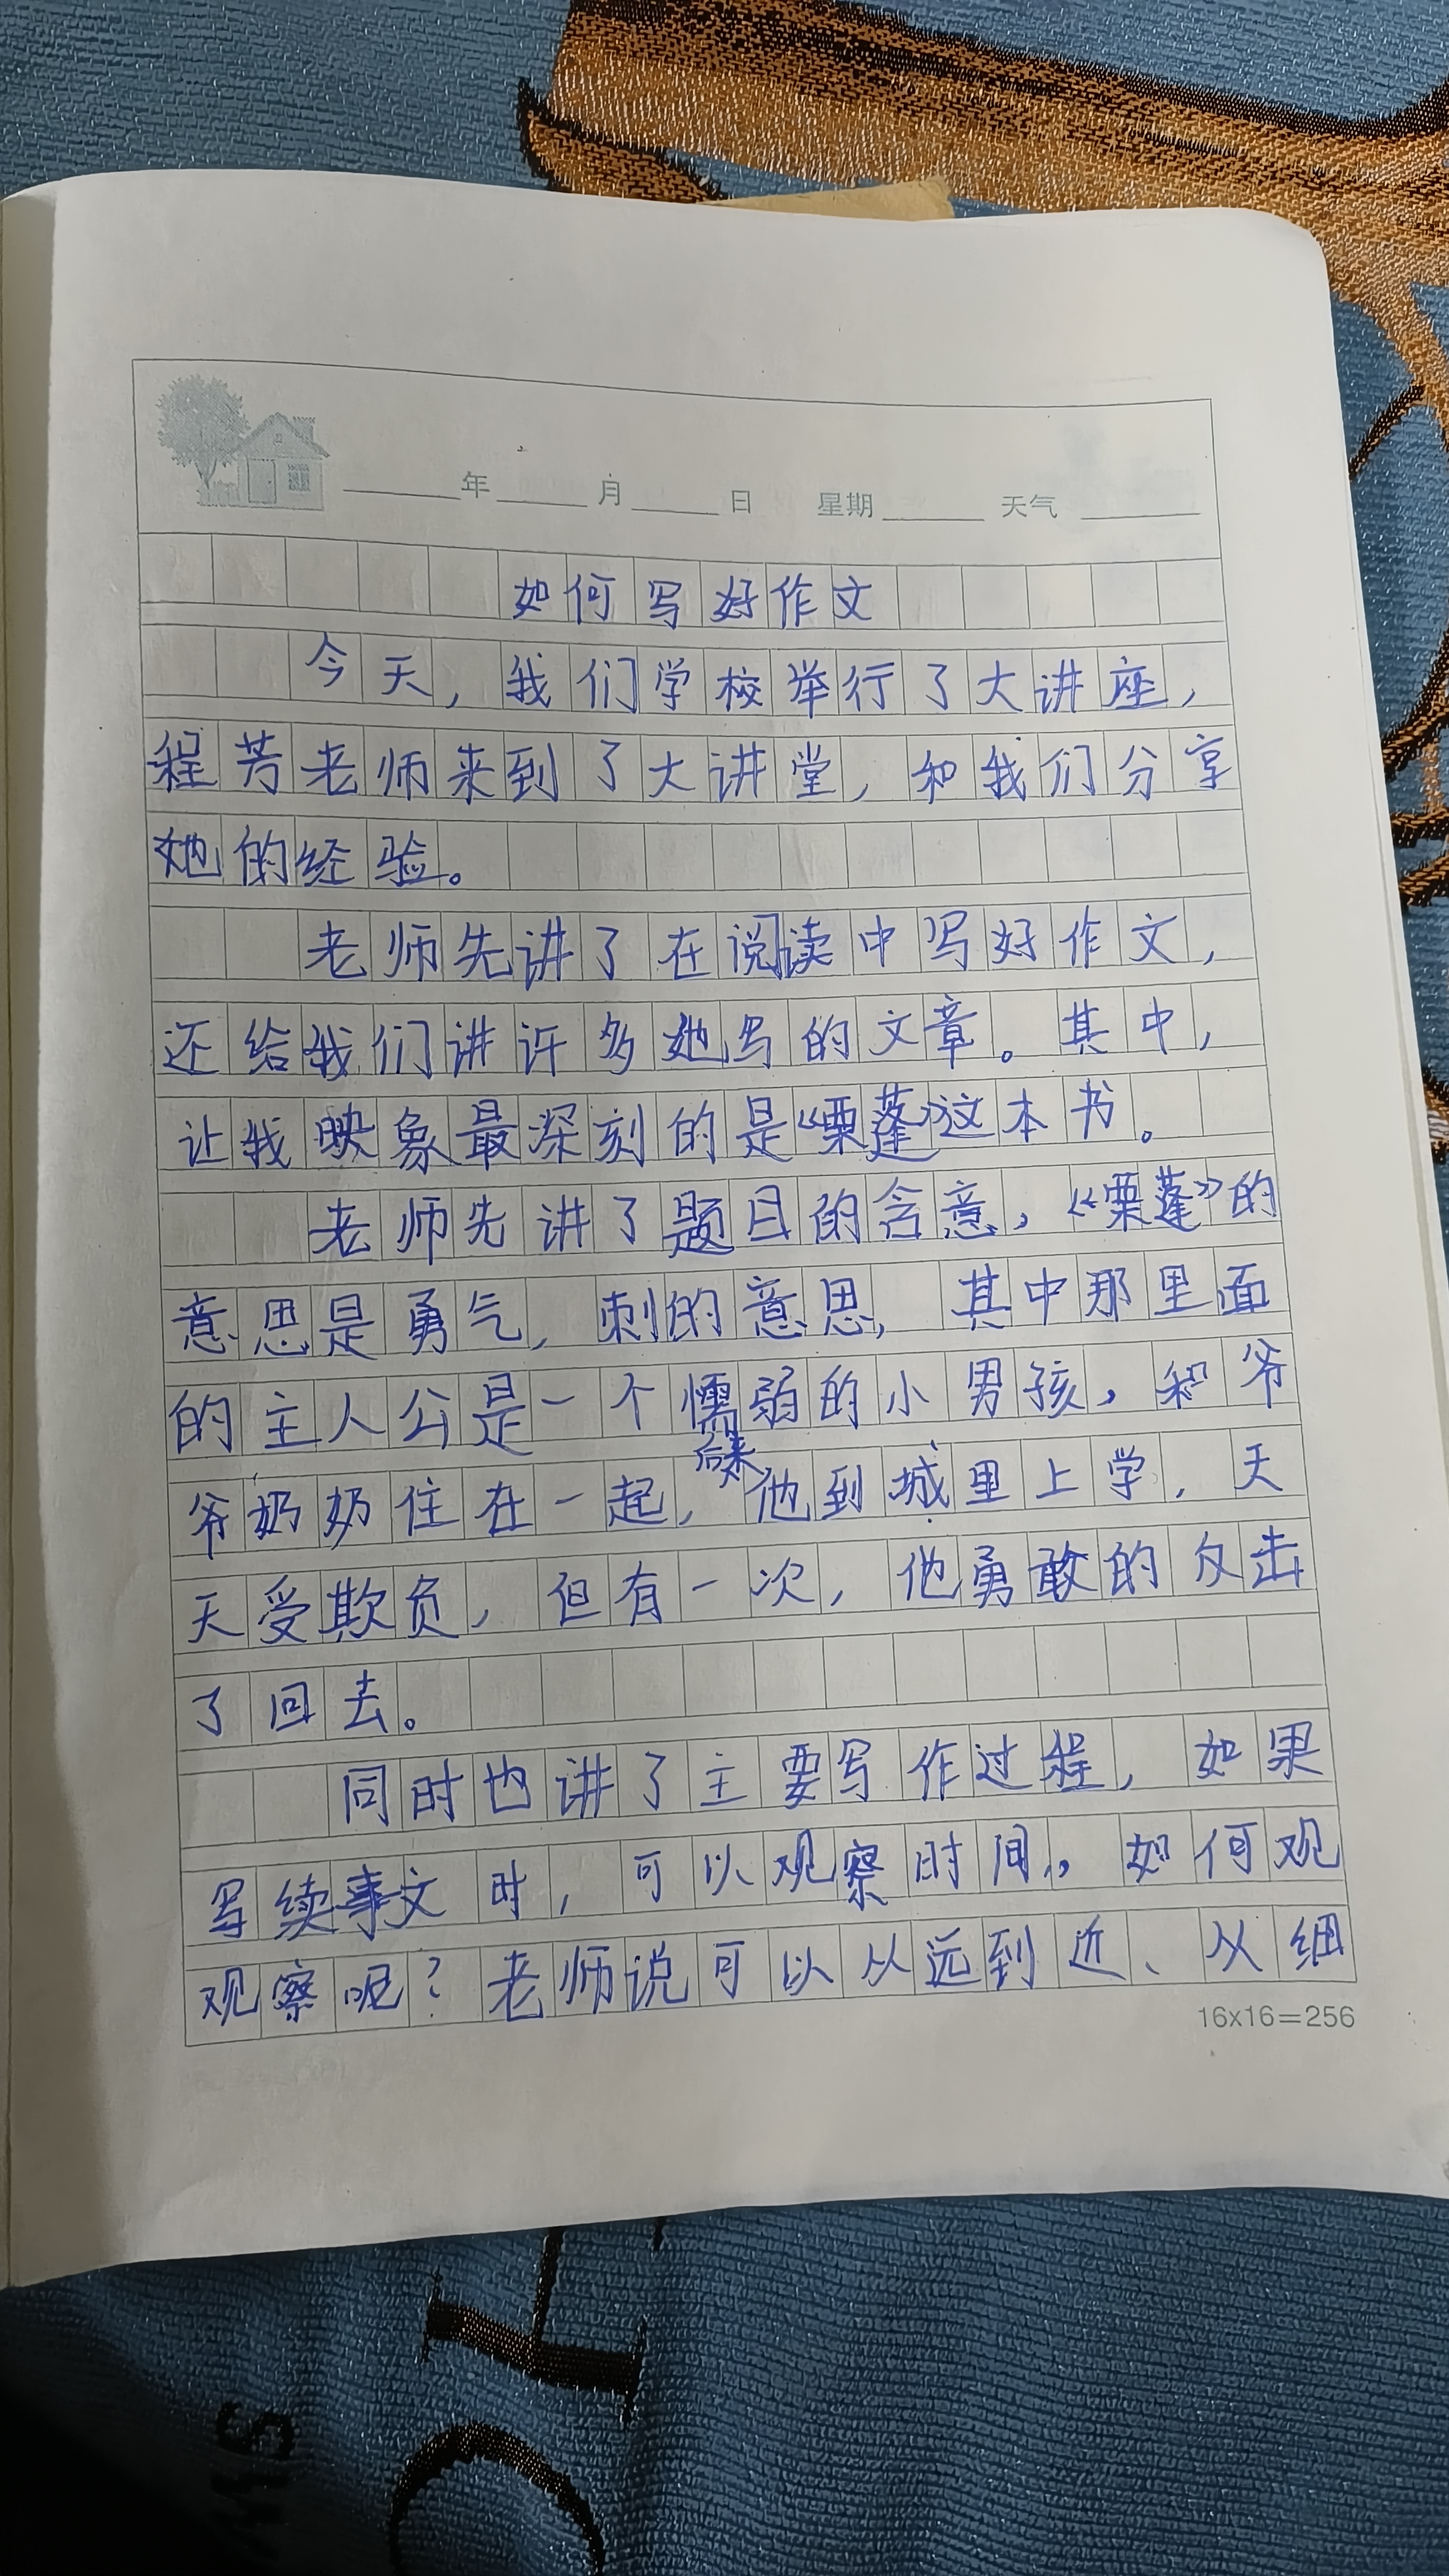 年 月 日 星期 天气
如何写好作文
今天，我们学校举行了大讲座，
程芳老师来到了大讲堂，和我们分享
她的经验。
老师先讲了在阅读中写好作文，
还给我们讲许多她写的文章。其中，
让我映象最深刻的是《栗蓬》这本书。
老师先讲了题目的含意，《栗蓬》的
意思是勇气，刺的意思，其中那里面
的主人公是一个懦弱的小男孩，和爷
爷奶奶住在一起，后来他到城里上学，天
天受欺负，但有一次，他勇敢的反击
了回去。
同时也讲了主要写作过程，如果
写续事文时，可以观察时间，如何观
观察呢？老师说可以从远到近、从细
16x16=256